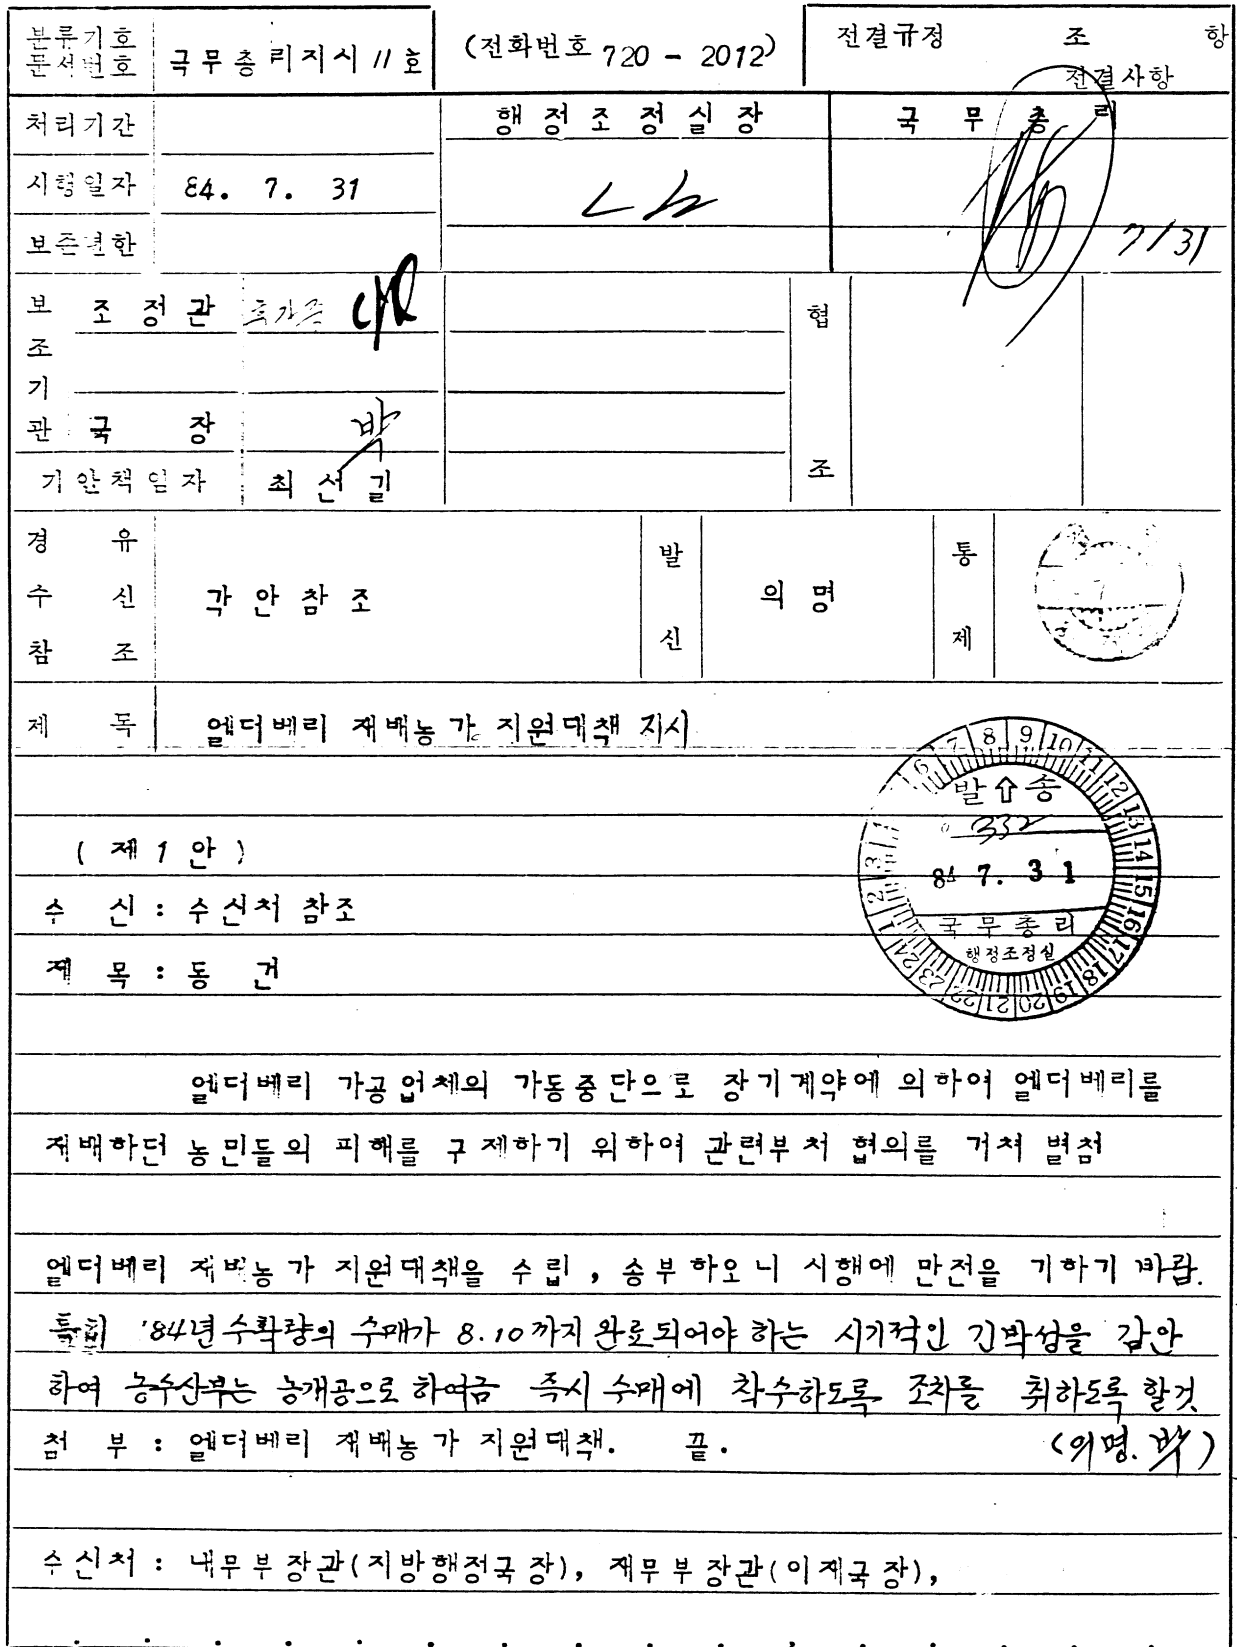 분류기호 문서번호 국무총리지시 11호 (전화번호 720 - 2012) 전결규정 조 항
전결사항
처리기간 행정조정실장 국무총리
시행일자 84. 7. 31
7/31
보존년한
보조기관 조정관 협조
국장 박
기안책임자 최선길
경유 수신 참조 각안참조 발신 의명 통제
제 목 엘더베리 재배농가 지원대책 지시
6 7 8 9 10 11 12 13 14 15 16 17 18 19 20 21 22 23 24 1 2 3
발 ⇧ 송
332
84 7. 31
국무총리
행정조정실
( 제 1 안 )
수 신 : 수신처 참조
제 목 : 동 건
엘더베리 가공업체의 가동중단으로 장기계약에 의하여 엘더베리를
재배하던 농민들의 피해를 구제하기 위하여 관련부처 협의를 거쳐 별첨
엘더베리 재배농가 지원대책을 수립, 송부하오니 시행에 만전을 기하기 바람.
특히 '84년 수확량의 수매가 8.10까지 완료되어야 하는 시기적인 긴박성을 감안
하여 농수산부는 농개공으로 하여금 즉시 수매에 착수하도록 조치를 취하도록 할것
첨 부 : 엘더베리 재배농가 지원대책. 끝. (의명. 박)
수신처 : 내무부장관(지방행정국장), 재무부장관(이재국장),